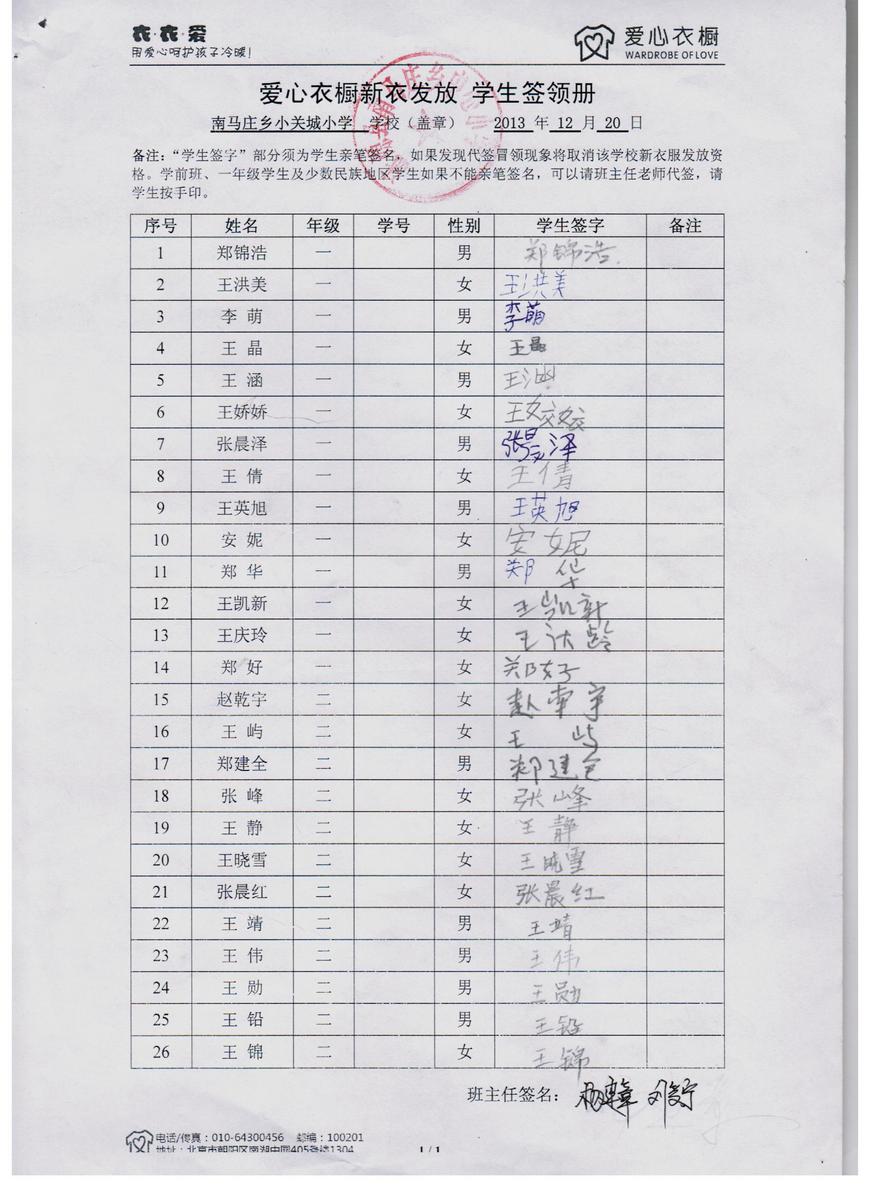 衣·衣·爱
用爱心呵护孩子冷暖!
爱心衣橱
WARDROBE OF LOVE
爱心衣橱新衣发放 学生签领册
南马庄乡小关城小学 学校（盖章） 2013 年 12 月 20 日
备注：“学生签字”部分须为学生亲笔签名，如果发现代签冒领现象将取消该学校新衣服发放资
格。学前班、一年级学生及少数民族地区学生如果不能亲笔签名，可以请班主任老师代签，请
学生按手印。
序号 姓名 年级 学号 性别 学生签字 备注
1 郑锦浩 一 男 郑锦浩
2 王洪美 一 女 王洪美
3 李 萌 一 男 李萌
4 王 晶 一 女 王晶
5 王 涵 一 男 王涵
6 王娇娇 一 女 王姣姣
7 张晨泽 一 男 张晨泽
8 王 倩 一 女 王倩
9 王英旭 一 男 王英旭
10 安 妮 一 女 安妮
11 郑 华 一 男 郑 华
12 王凯新 一 女 王凯新
13 王庆玲 一 女 王 龄
14 郑 好 一 女 郑好
15 赵乾宇 二 女 赵 宇
16 王 屿 二 女 王 屿
17 郑建全 二 男 郑建全
18 张 峰 二 女 张峰
19 王 静 二 女 王 静
20 王晓雪 二 女 王晓雪
21 张晨红 二 女 张晨红
22 王 靖 二 男 王靖
23 王 伟 二 男 王伟
24 王 勋 二 男 王勋
25 王 铅 二 男 王铅
26 王 锦 二 女 王锦
班主任签名：
电话/传真：010-64300456 邮编：100201
地址：北京市朝阳区南湖中园405号楼1304 1 / 1